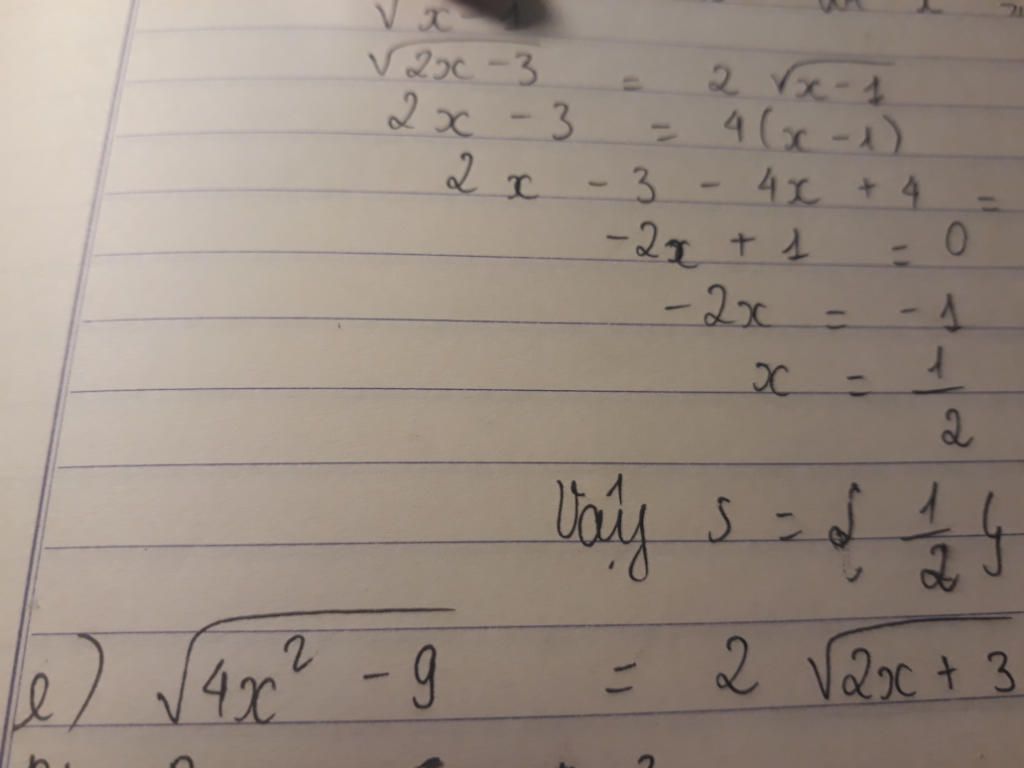 √x - 1
√2x - 3 = 2 √x - 1
2x - 3 = 4(x - 1)
2x - 3 - 4x + 4 =
-2x + 1 = 0
-2x = -1
x = 1/2
Vậy S = { 1/2 }
e) √4x² - 9 = 2 √2x + 3